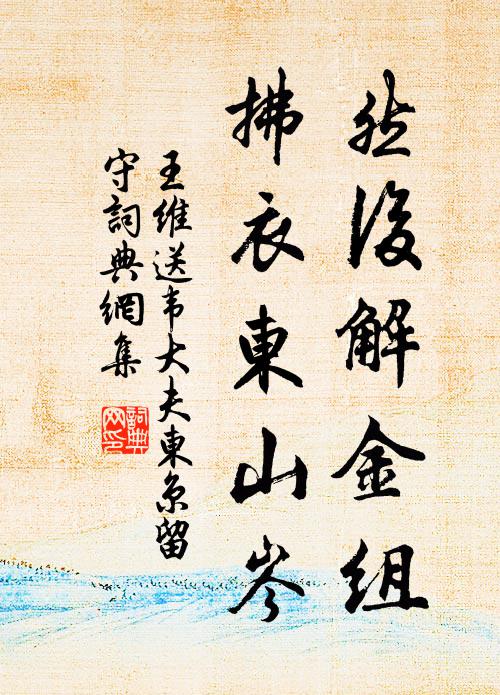 然後解金組
拂衣東山岑
王維送韦大夫東京留
守詞典網集
詞典
网印